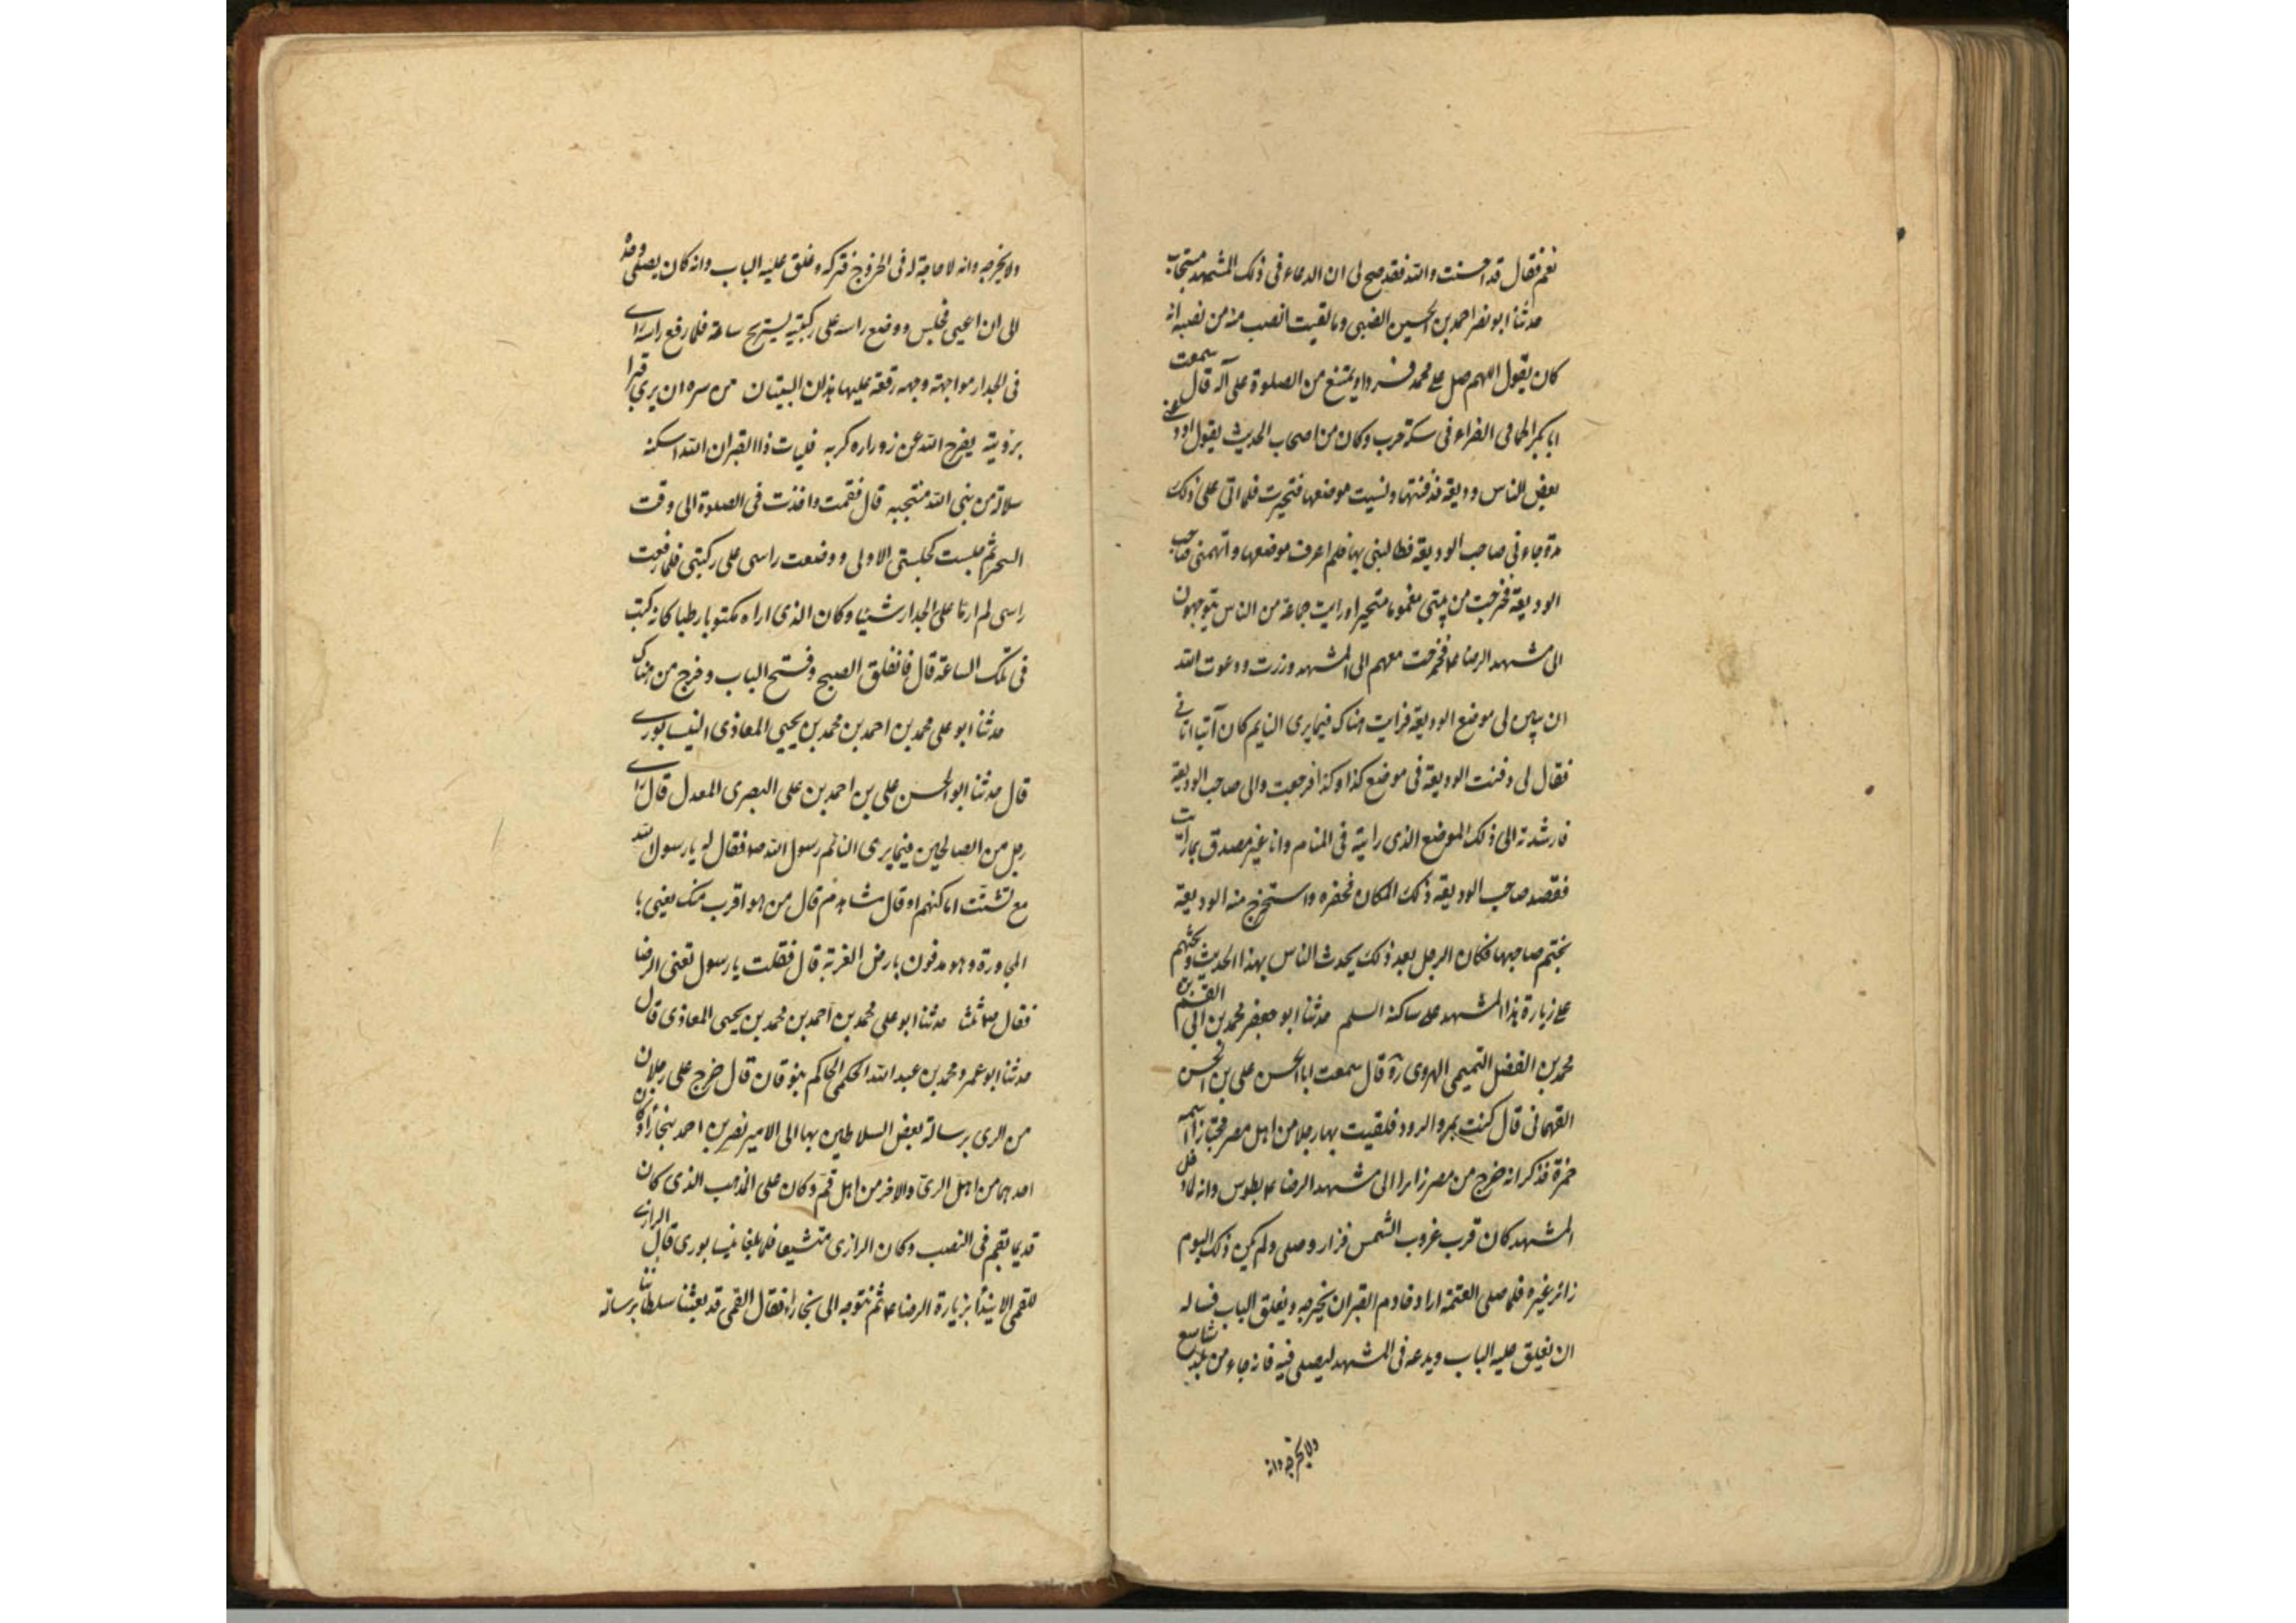 نعم فقال قد احسنت والله فقد صح لی ان الدعاء فی ذلک المشهد مستجاب
حدثنا ابو نصر احمد بن الحسین الضبی وما لقیت انصب منه من نصبه انه
کان یقول اللهم صل علی محمد فردا ویمتنع من الصلوة علی آله قال سمعت
ابا بکر الحمامی الفراء فی سکة حرب وکان من اصحاب الحدیث یقول اودعنی
بعض الناس ودیعة فدفنتها ونسیت موضعها فتحیرت فلما اتی علی ذلک
مدة جاءنی صاحب الودیعة فطالبنی بها فلم اعرف موضعها واتهمنی صاحب
الودیعة فخرجت من بیتی مغموما متحیرا ورایت جماعة من الناس یتوجهون
الی مشهد الرضا ع فخرجت معهم الی المشهد وزرت ودعوت الله
ان یبین لی موضع الودیعة فرایت هناک فیما یری النایم کان آتیا اتانی
فقال لی دفنت الودیعة فی موضع کذا وکذا فرجعت والی صاحب الودیعة
فارشدته الی ذلک الموضع الذی رایته فی المنام وانا غیر مصدق بما رایت
فقصد صاحب الودیعة ذلک المکان فحفره واستخرج منه الودیعة
بختم صاحبها فکان الرجل بعد ذلک یحدث الناس بهذا الحدیث ویحثهم
علی زیارة هذا المشهد علی ساکنه السلم حدثنا ابو جعفر محمد بن ابی القسم بن
محمد بن الفضل التمیمی الهروی ره قال سمعت ابا الحسن علی بن الحسن
القهانی قال کنت بمرو الرود فلقیت بها رجلا من اهل مصر مجتازا اسمه
حمزة فذکر انه خرج من مصر زائرا الی مشهد الرضا ع بطوس وانه لما دخل
المشهد کان قرب غروب الشمس فزار وصلی ولم یکن ذلک الیوم
زائر غیره فلما صلی العتمة اراد خادم القبر ان یخرجه ویغلق الباب فساله
ان یغلق علیه الباب ویدعه فی المشهد لیصلی فیه فانه جاء من بلد شاسع
ولا یخرجه وانه
ولا یخرجه وانه لا حاجة له فی الخروج فترکه وغلق علیه الباب وانه کان یصلی وحده
الی ان اعیی فجلس ووضع راسه علی رکبتیه یستریح ساعة فلما رفع راسه رای
فی الجدار مواجهة وجهه رقعة علیها هذان البیتان من سره ان یری قبرا
برؤیته یفرج الله عمن زاره کربه فلیات ذا القبر ان الله اسکنه
سلالة من نبی الله منتجبه قال فقمت واخذت فی الصلوة الی وقت
السحر ثم جلست کجلستی الاولی ووضعت راسی علی رکبتی فلما رفعت
راسی لم ار ما علی الجدار شیئا وکان الذی اراه مکتوبا رطبا کانه کتب
فی تلک الساعة قال فانفلق الصبح وفتح الباب وخرج من هناک
حدثنا ابو علی محمد بن احمد بن محمد بن یحیی المعاذی النیسابوری
قال حدثنا ابو الحسن علی بن احمد بن علی البصری المعدل قال رای
رجل من الصالحین فیما یری النائم رسول الله ص فقال له یا رسول الله
مع تشتت اماکنهم او قال مشاهدهم قال من هو اقرب منک یعنی با
المجاورة وهو مدفون بارض الغربة قال فقلت یا رسول تعنی الرضا
فقال ص ثلثا حدثنا ابو علی محمد بن احمد بن محمد بن یحیی المعاذی قال
حدثنا ابو عمرو محمد بن عبد الله الحکمی الحاکم بنوقان قال خرج علی رجلان
من الری برسالة بعض السلاطین بها الی الامیر نصر بن احمد ببخارا وکان
احدهما من اهل الری والاخر من اهل قم وکان علی المذهب الذی کان
قدیما بقم فی النصب وکان الرازی متشیعا فلما بلغا نیسابوری قال الرازی
للقمی الا نبدأ بزیارة الرضا ع ثم نتوجه الی بخارا فقال القمی قد بعثنا سلطاننا برسالة